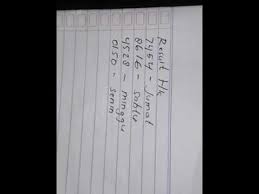 Result H/K
7454 - Jumat
8616 - Sabtu
4528 - minggu
0150 - senin